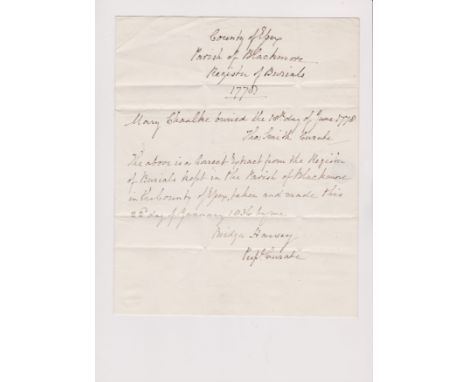 County of Essex
Parish of Blackmore
Register of Burials
1778
Mary Chaulke buried the 10th day of June 1778
Thos. Smith Curate
The above is a Correct Extract from the Register
of Burials kept in the Parish of Blackmore
in the County of Essex, taken and made this
22d day of January 1836 by me
Harvey
Curate